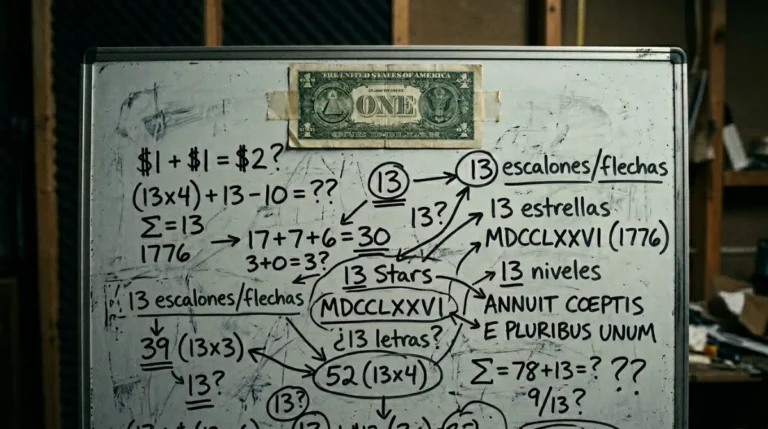 THE UNITED STATES OF AMERICA
ONE
ONE DOLLAR
$1 + $1 = $2?
(13x4) + 13 - 10 = ??
Σ = 13
1776 → 17 + 7 + 6 = 30
3 + 0 = 3?
13 escalones/flechas
39 (13x3)
13?
13
13?
13 Stars
MDCCLXXVI
¿13 letras?
52 (13x4)
13?
13 escalones/flechas
13 estrellas
MDCCLXXVI (1776)
13 niveles
ANNUIT CŒPTIS
E PLURIBUS UNUM
Σ = 78 + 13 = ? ??
9/13?